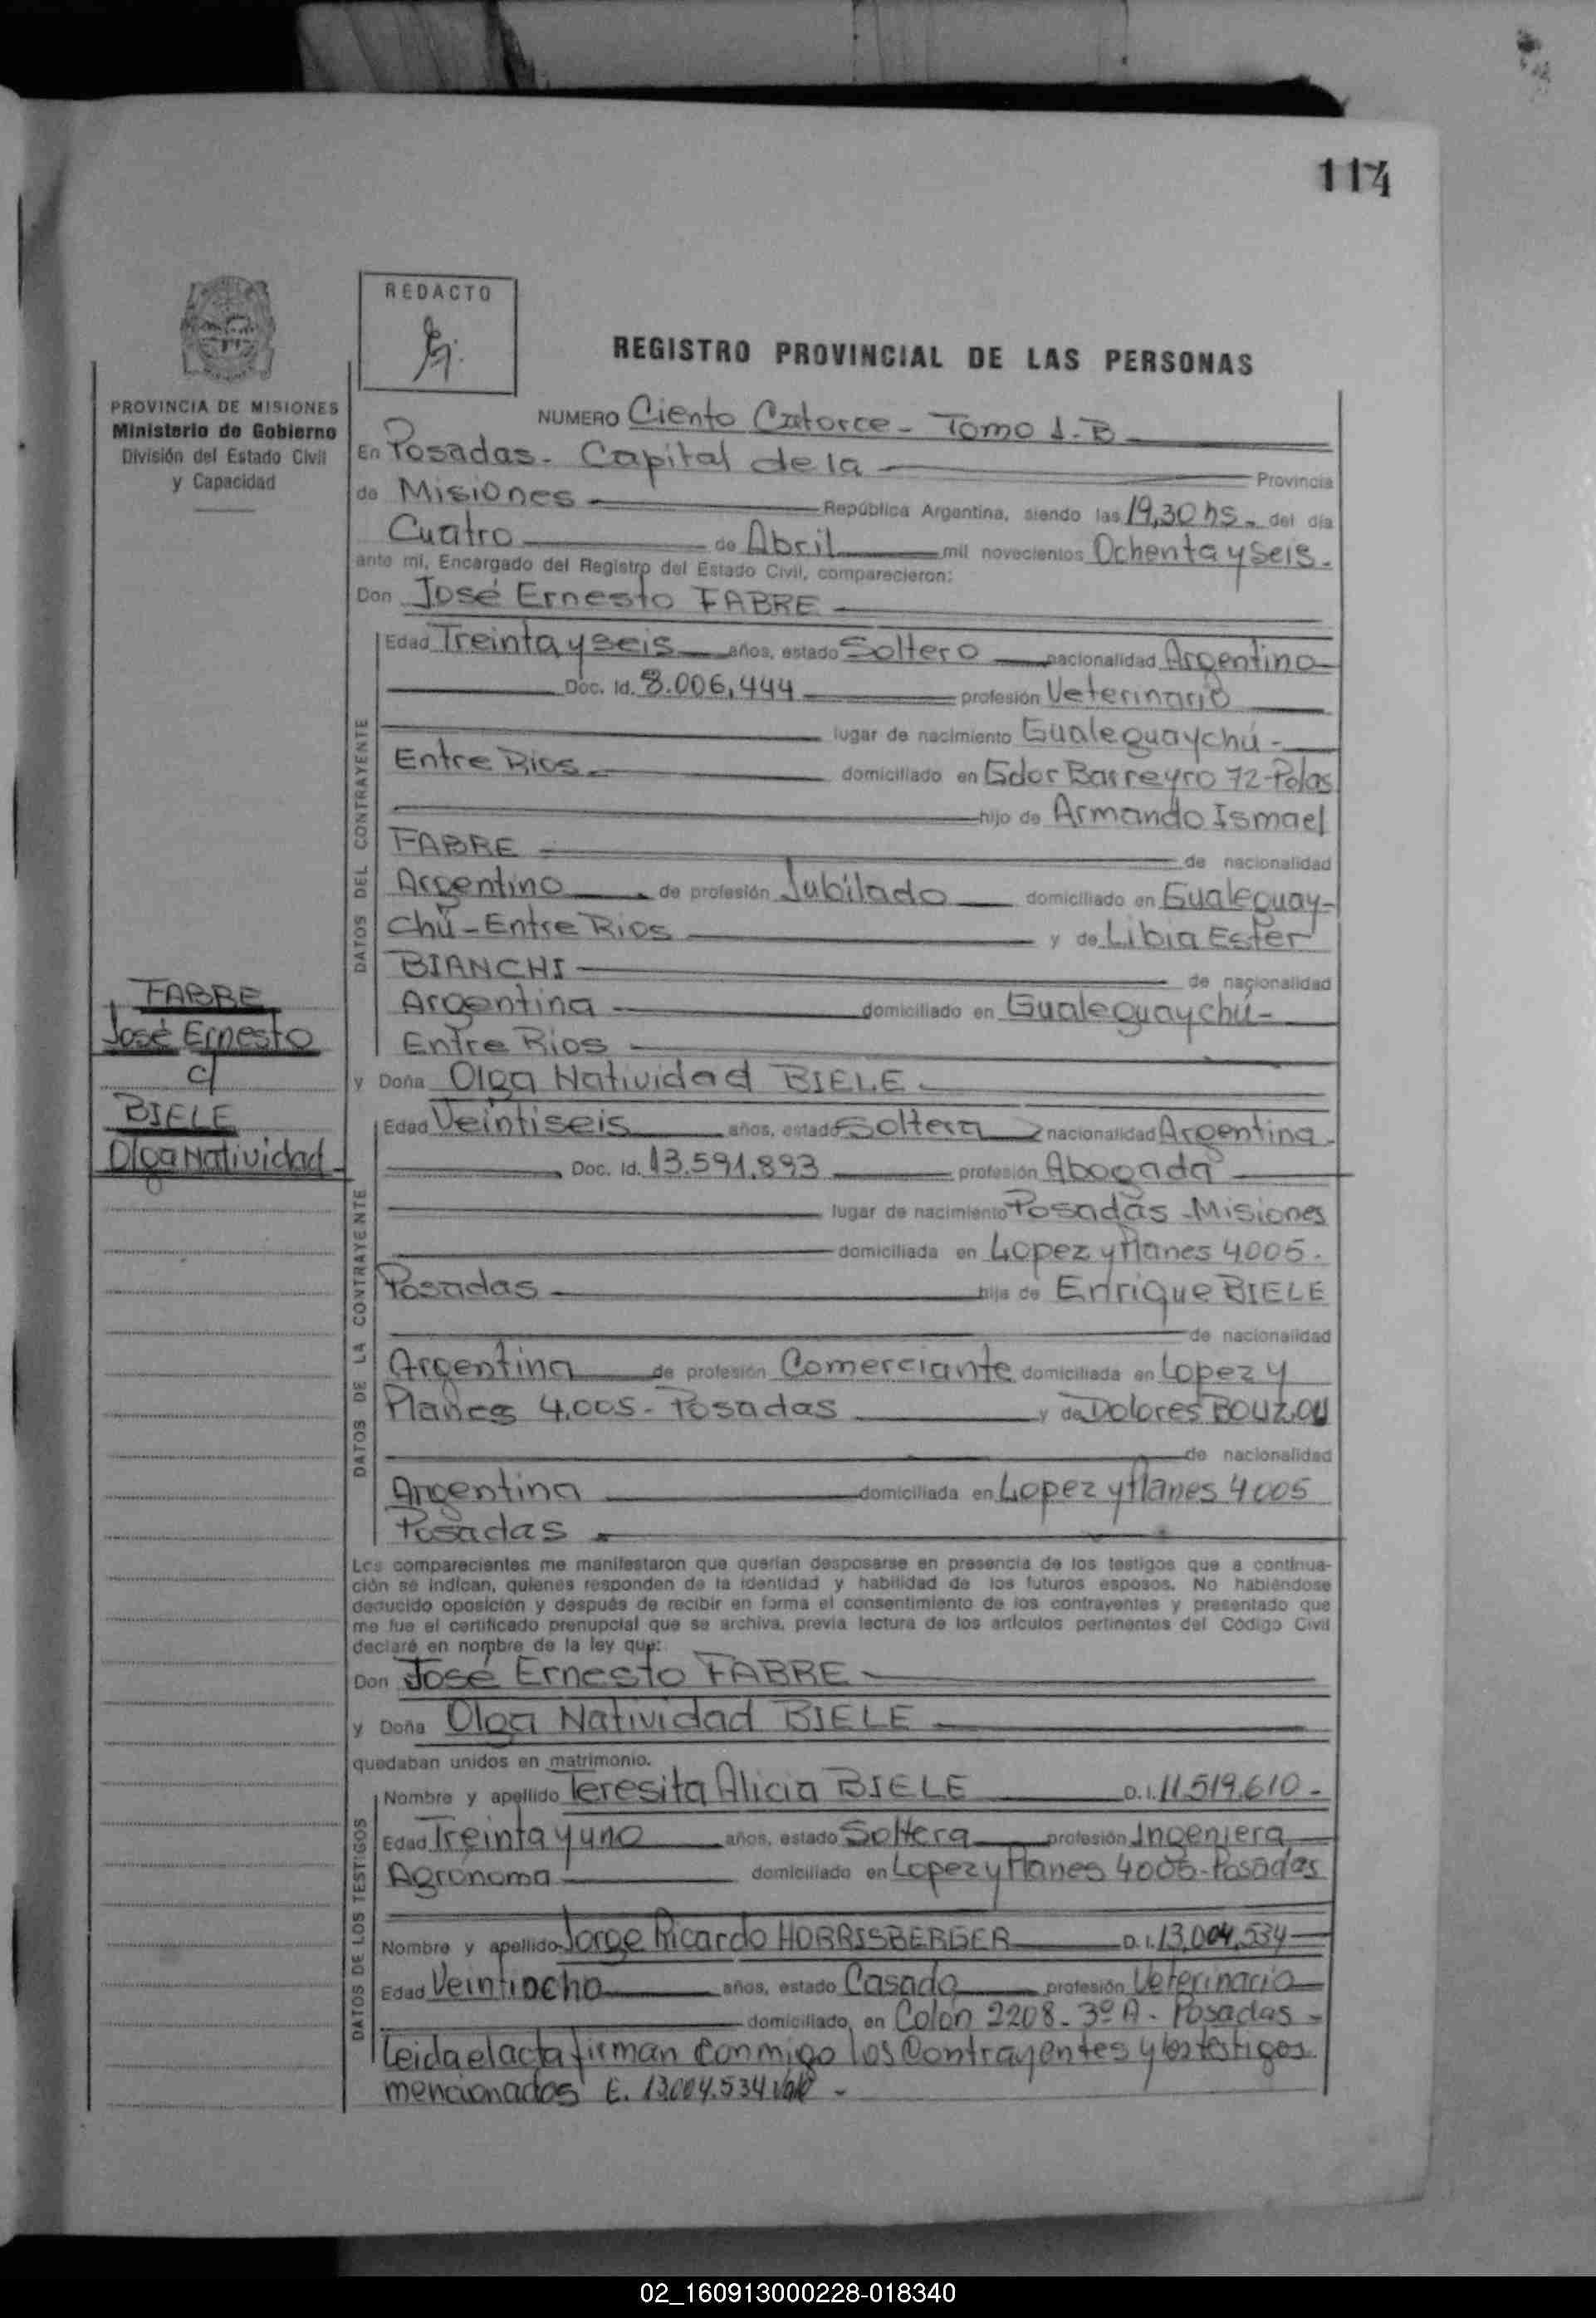 114
REDACTO
REGISTRO PROVINCIAL DE LAS PERSONAS
PROVINCIA DE MISIONES
Ministerio de Gobierno
División del Estado Civil
y Capacidad
NUMERO Ciento Catorce - Tomo 1-B
En Posadas - Capital de la Provincia
de Misiones República Argentina, siendo las 19,30 hs. del día
Cuatro de Abril mil novecientos Ochenta y Seis.
ante mi, Encargado del Registro del Estado Civil, comparecieron:
Don José Ernesto FABRE
DATOS DEL CONTRAYENTE
Edad Treinta y seis años, estado Soltero nacionalidad Argentino
Doc. Id. 8.006.444 profesión Veterinario
lugar de nacimiento Gualeguaychú -
Entre Rios domiciliado en Gdor Barreyro 72-Pdas
hijo de Armando Ismael
FABRE de nacionalidad
Argentino de profesión Jubilado domiciliado en Gualeguay-
chú - Entre Rios y de Libia Ester
BIANCHI de nacionalidad
Argentina domiciliado en Gualeguaychú -
Entre Rios
FABRE
José Ernesto
c/
BIELE
Olga Natividad
y Doña Olga Natividad BIELE
DATOS DE LA CONTRAYENTE
Edad Veintiseis años, estado Soltera nacionalidad Argentina
Doc. Id. 13.591.893 profesión Abogada
lugar de nacimiento Posadas - Misiones
domiciliada en Lopez y Planes 4005.
Posadas hija de Enrique BIELE
de nacionalidad
Argentina de profesión Comerciante domiciliada en Lopez y
Planes 4.005 - Posadas y de Dolores BOUZOU
de nacionalidad
Argentina domiciliada en Lopez y Planes 4005
Posadas
Los comparecientes me manifestaron que querían desposarse en presencia de los testigos que a continua-
ción se indican, quienes responden de la identidad y habilidad de los futuros esposos. No habiéndose
deducido oposición y después de recibir en forma el consentimiento de los contrayentes y presentado que
me fue el certificado prenupcial que se archiva, previa lectura de los artículos pertinentes del Código Civil
declaré en nombre de la ley que:
Don José Ernesto FABRE
y Doña Olga Natividad BIELE
quedaban unidos en matrimonio.
DATOS DE LOS TESTIGOS
Nombre y apellido Teresita Alicia BIELE D.I. 11.519.610 -
Edad Treinta y uno años, estado Soltera profesión Ingeniera
Agronoma domiciliado en Lopez y Planes 4005-Posadas
Nombre y apellido Jorge Ricardo HORRISBERGER D.I. 13.004.534
Edad Veintiocho años, estado Casado profesión Veterinario
domiciliado en Colón 2208 - 3º A - Posadas -
Leida el acta firman conmigo los Contrayentes y los testigos
mencionados E. 13.004.534 Vale -
02_160913000228-018340